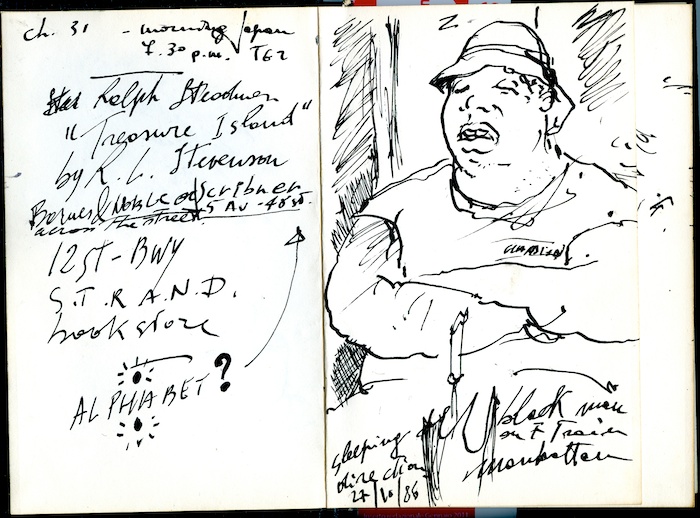 ch. 31 - morning Japan
7.30 p.m. TG2
Ralph Steadman
"Treasure Island"
by R. L. Stevenson
Barnes & Noble or Scribner
across the street 5 AV - 48 st.
12 ST - BWY
S.T.R.A.N.D.
book store
ALPHABET ?
black man
on F Train
manhattan
sleeping
direction
27/10/86